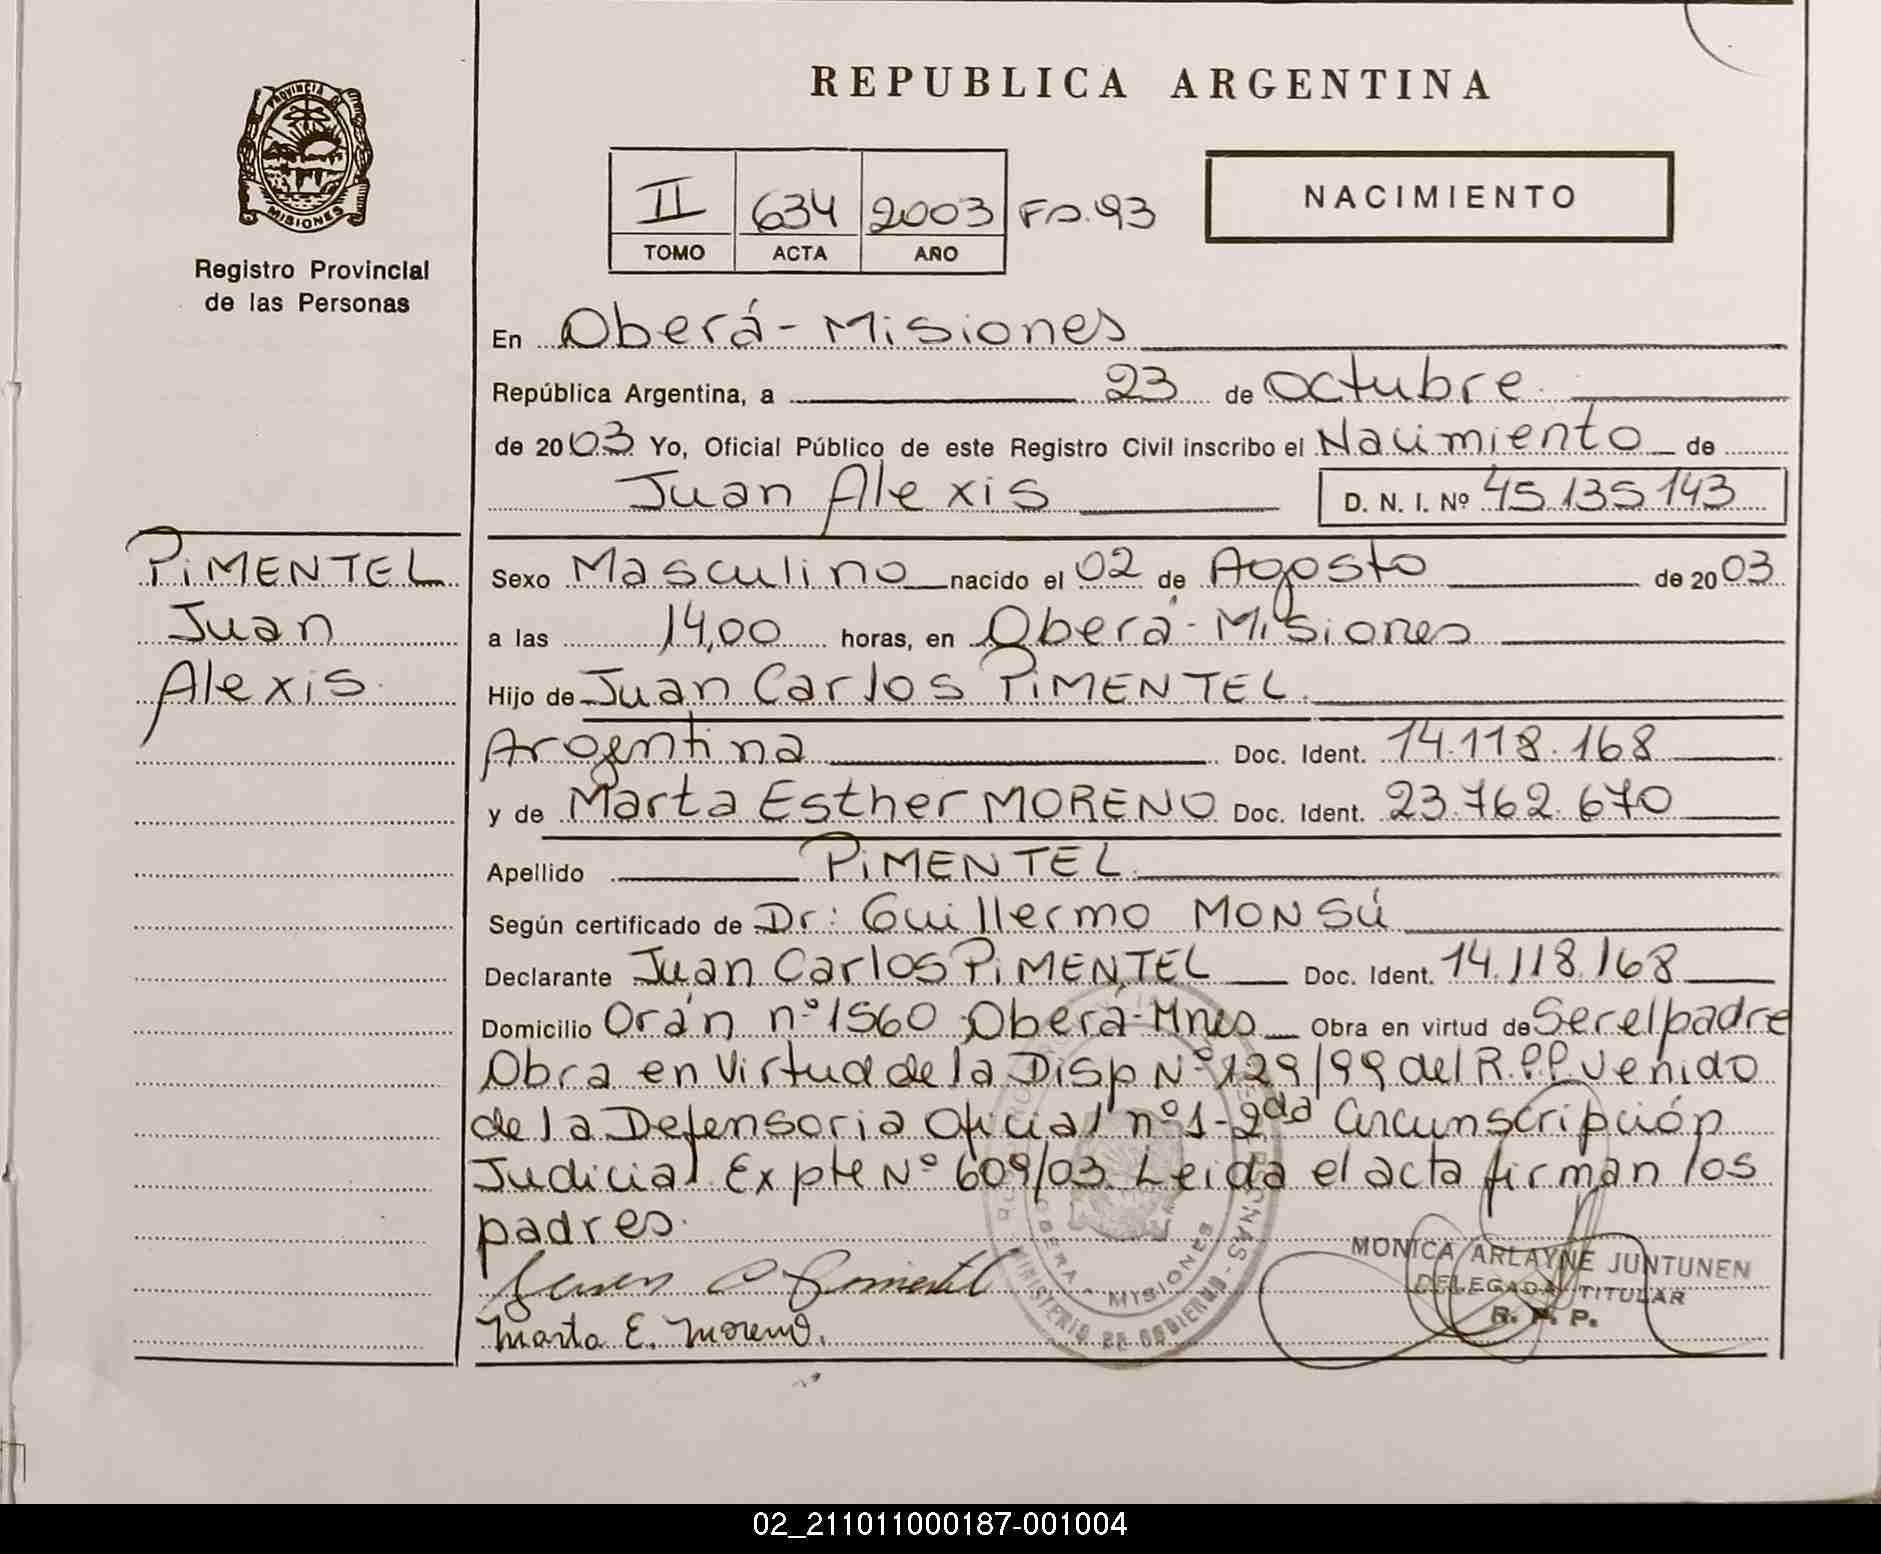 REPUBLICA ARGENTINA
PROVINCIA DE
MISIONES
Registro Provincial
de las Personas
II 634 2003 Fo. 93
TOMO ACTA AÑO
NACIMIENTO
En Oberá - Misiones
República Argentina, a 23 de octubre
de 2003 Yo, Oficial Público de este Registro Civil inscribo el Nacimiento de
Juan Alexis D. N. I. Nº 45.135.143
PiMENTEL
Juan
Alexis.
Sexo Masculino nacido el 02 de Agosto de 2003
a las 14,00 horas, en Oberá - Misiones
Hijo de Juan Carlos PiMENTEL.
Argentina Doc. Ident. 14.118.168
y de Marta Esther MORENO Doc. Ident. 23.762.670
Apellido PiMENTEL.
Según certificado de Dr: Guillermo MONSÚ
Declarante Juan Carlos PiMENTEL Doc. Ident. 14.118.168
Domicilio Orán nº 1560 Oberá-Mnes Obra en virtud de Ser el padre
Obra en Virtud de la Disp Nº 129/99 del R.P.P venido
de la Defensoria Oficial nº 1-2da Circunscripción
Judicial Expte Nº 609/03. Leida el acta firman los
padres.
Juan C Pimentel
Marta E. Moreno.
OBERA - MISIONES
MINISTERIO DE GOBIERNO -
MONICA ARLAYNE JUNTUNEN
DELEGADA TITULAR
R. P. P.
02_211011000187-001004